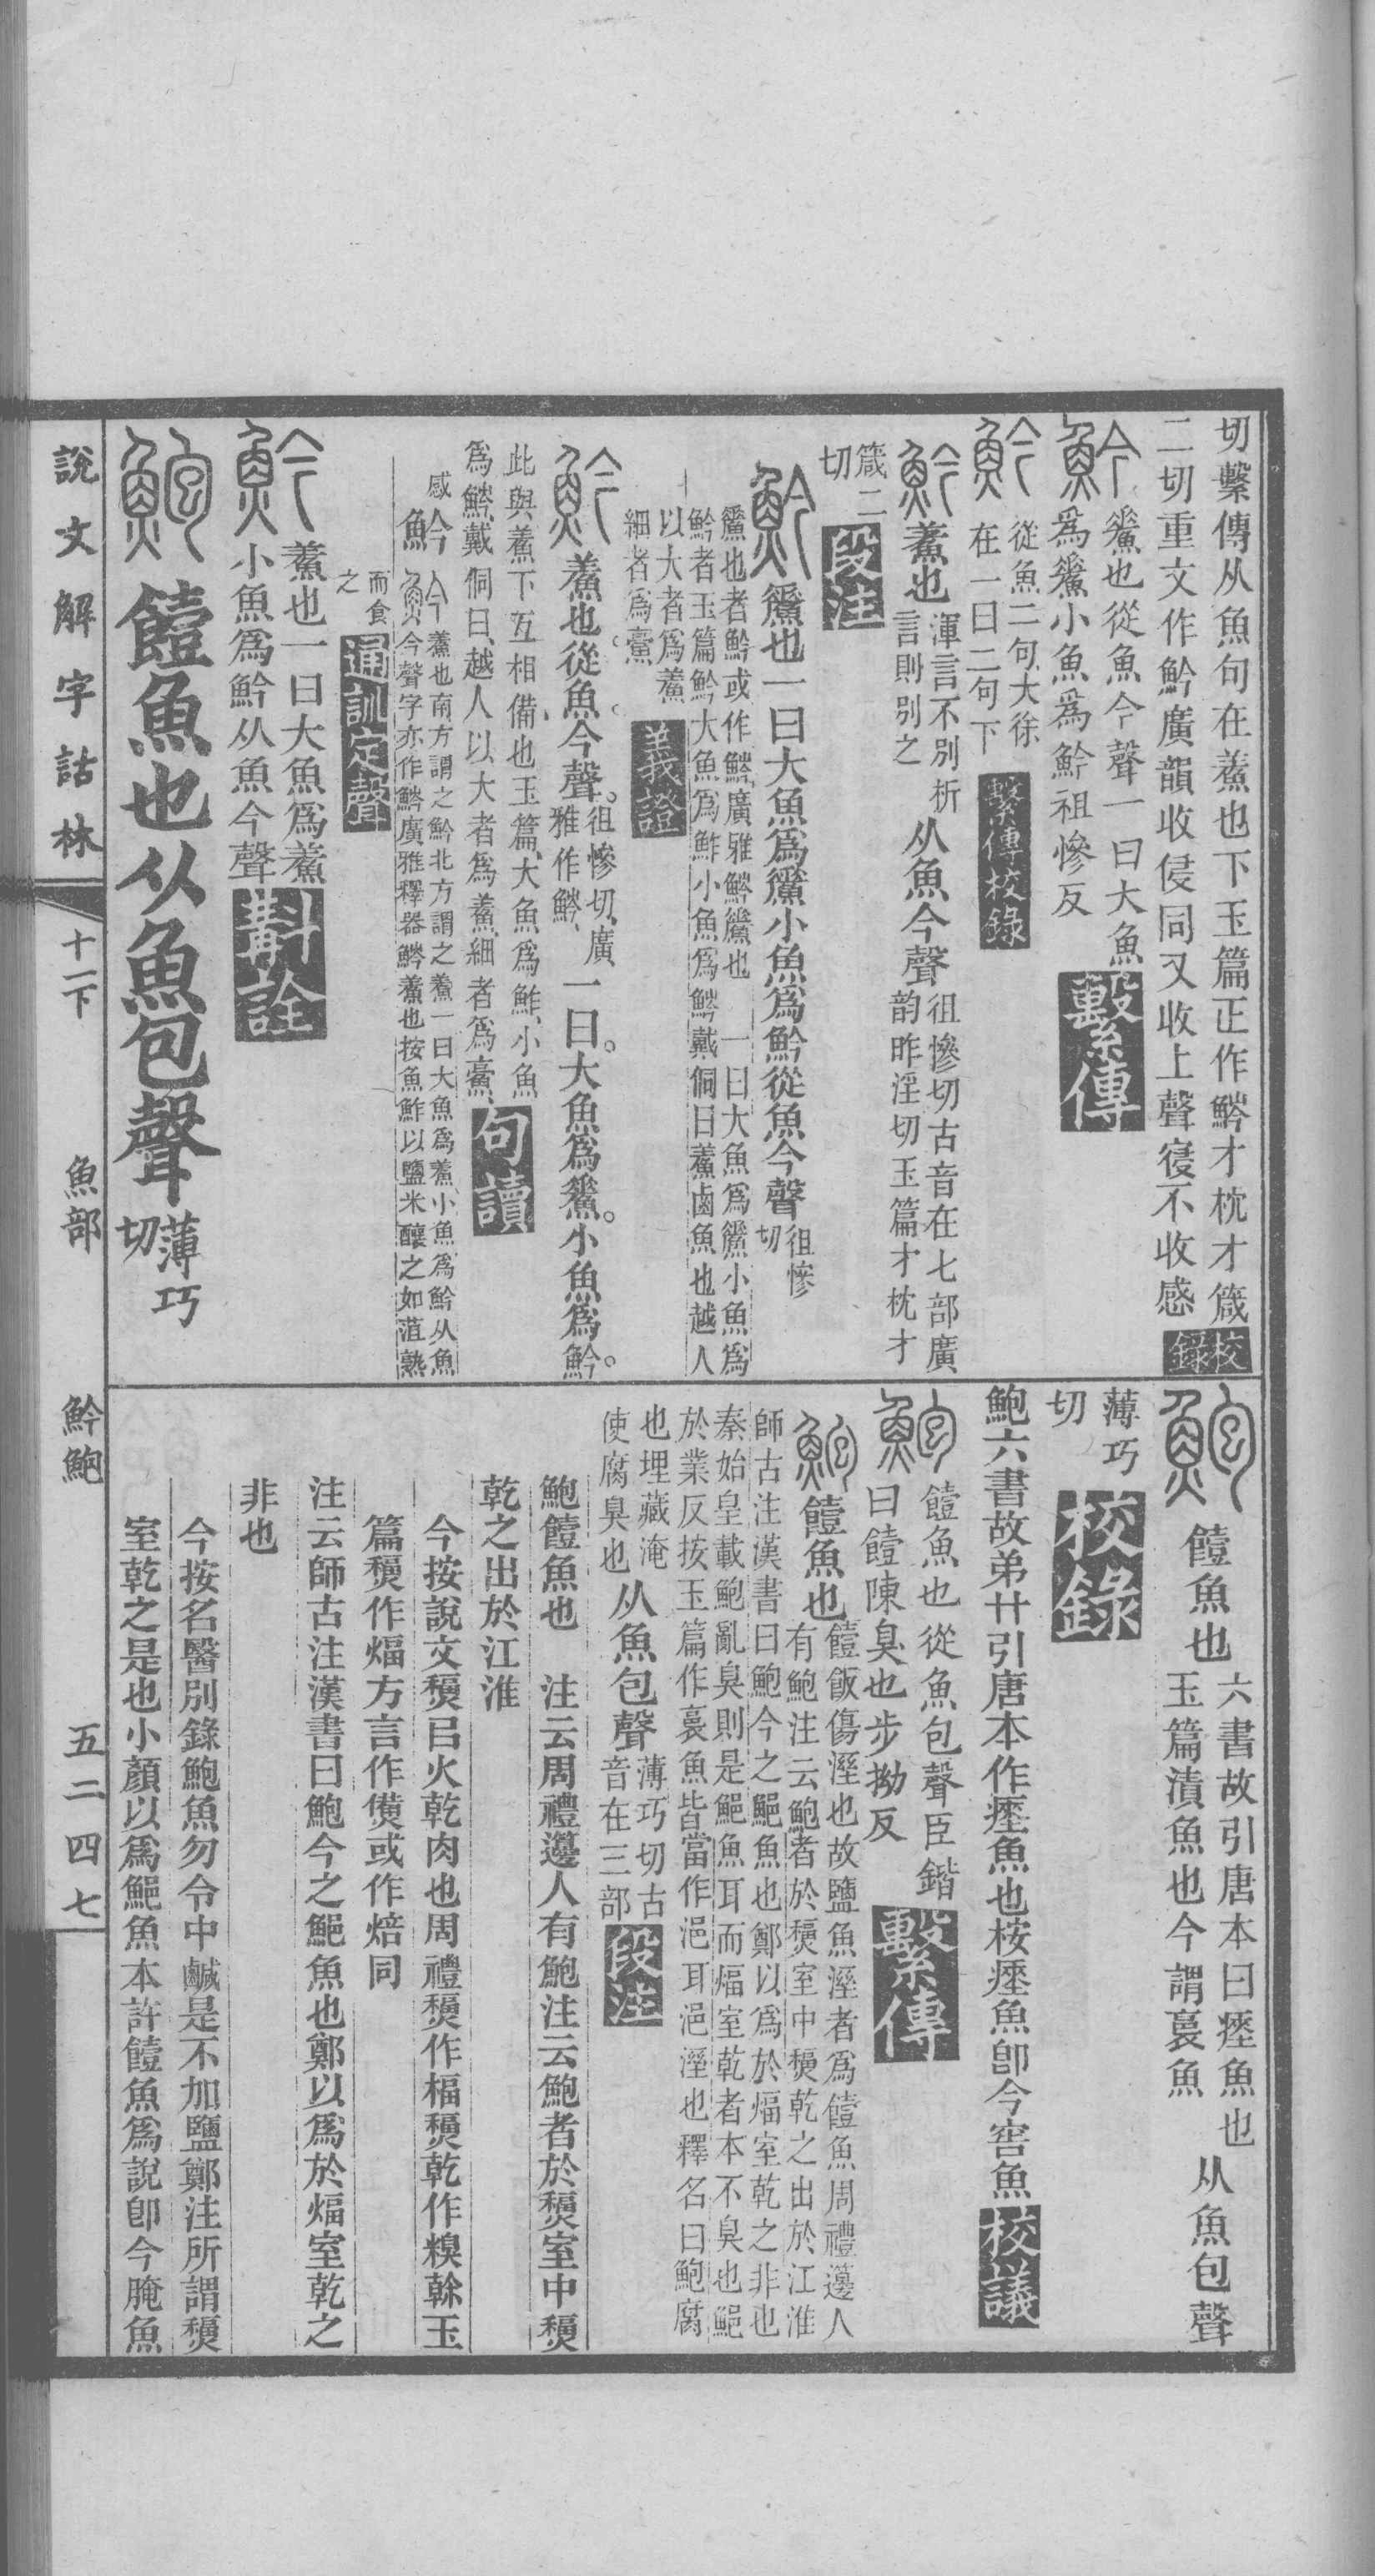 切繫傳从魚句在鮺也下玉篇正作䱹才枕才箴
二切重文作魿廣韻收侵同又收上聲寑不收感
校錄
魿鮺也從魚今聲一曰大魚
爲鮺小魚爲魿祖慘反
繫傳
魿從魚二句大徐
在一曰二句下
繫傳校錄
魿鮺也
渾言不別析
言則別之
从魚今聲
徂慘切古音在七部廣
韵昨淫切玉篇才枕才
箴二
切
段注
魿鮺也一曰大魚爲鮺小魚爲魿從魚今聲
徂慘
切
鮺也者魿或作䱹廣雅䱹鮺也 一曰大魚爲鮺小魚爲
魿者玉篇魿大魚爲鮓小魚爲䱹戴侗曰鮺鹵魚也越人
以大者爲鮺
細者爲鱟
義證
魿鮺也從魚今聲。
徂慘切廣
雅作䱹
一曰。大魚爲鮺。小魚爲魿。
此與鮺下互相備也玉篇、大魚爲鮓、小魚
爲䱹、戴侗曰、越人以大者爲鮺、細者爲鱟、
句讀
感魿
魿鮺也南方謂之魿北方謂之鮺一曰大魚爲鮺小魚爲魿从魚
今聲字亦作䱹廣雅釋器䱹鮺也按魚鮓以鹽米釀之如菹熟
而食
之
通訓定聲
魿鮺也一曰大魚爲鮺
小魚爲魿从魚今聲
斠詮
鮑饐魚也从魚包聲
薄巧
切
鮑饐魚也
六書故引唐本曰瘞魚也
玉篇漬魚也今謂裛魚
从魚包聲
薄巧
切
校錄
鮑六書故弟廿引唐本作瘞魚也桉瘞魚卽今窖魚
校議
鮑饐魚也從魚包聲臣鍇
曰饐陳臭也步拗反
繫傳
鮑饐魚也
饐飯傷溼也故鹽魚溼者爲饐魚周禮籩人
有鮑注云鮑者於䅩室中䅩乾之出於江淮
師古注漢書曰鮑今之䱒魚也鄭以爲於煏室乾之非也
秦始皇載鮑亂臭則是䱒魚耳而煏室乾者本不臭也䱒
於業反按玉篇作裛魚皆當作浥耳浥溼也釋名曰鮑腐
也埋藏淹
使腐臭也
从魚包聲
薄巧切古
音在三部
段注
鮑饐魚也 注云周禮籩人有鮑注云鮑者於䅩室中䅩
乾之出於江淮
今按說文䅩㠯火乾肉也周禮䅩作楅䅩乾作糗榦玉
篇䅩作煏方言作㷶或作焙同
注云師古注漢書曰鮑今之䱒魚也鄭以爲於煏室乾之
非也
今按名醫別錄鮑魚勿令中鹹是不加鹽鄭注所謂䅩
室乾之是也小顏以爲䱒魚本許饐魚爲說卽今腌魚
說文解字詁林
十一下
魚部
魿鮑
五二四七